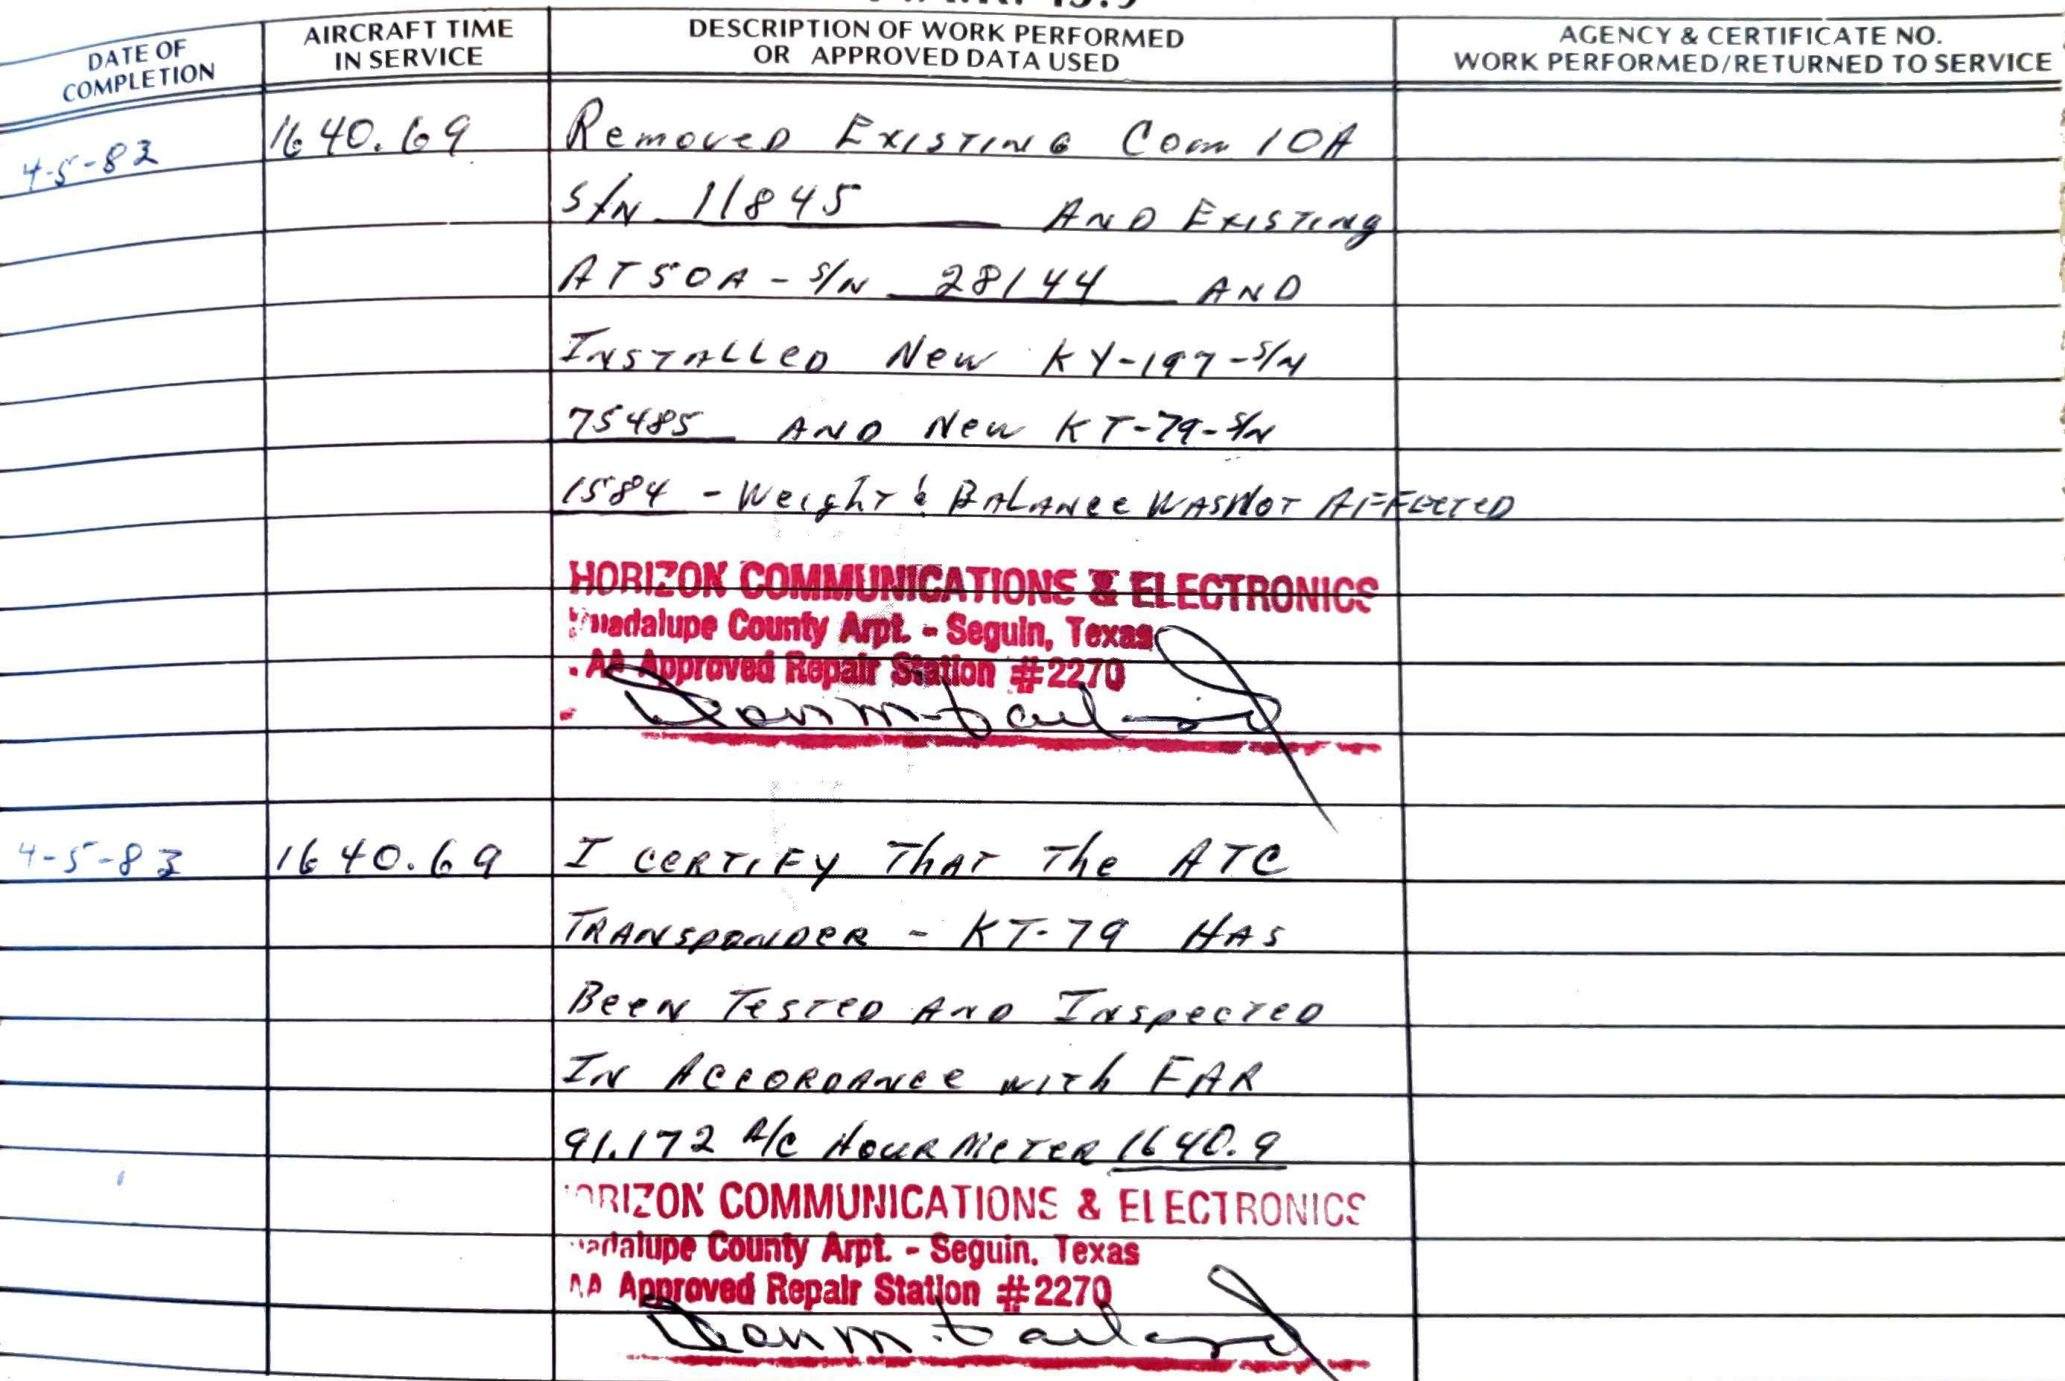 DATE OF COMPLETION
AIRCRAFT TIME IN SERVICE
DESCRIPTION OF WORK PERFORMED OR APPROVED DATA USED
AGENCY & CERTIFICATE NO. WORK PERFORMED/RETURNED TO SERVICE
4-5-83 1640.69 Removed Existing Com 10A
S/N 11845 AND Existing
AT50A - S/N 28144 AND
Installed New KY-197-S/N
75485 AND New KT-79-S/N
1584 - Weight & Balance Was Not Affected
HORIZON COMMUNICATIONS & ELECTRONICS
Guadalupe County Arpt. - Seguin, Texas
AA Approved Repair Station #2270
4-5-83 1640.69 I certify That The ATC
Transponder - KT-79 Has
Been Tested And Inspected
In Accordance with FAR
91.172 A/C Hour Meter 1640.9
ORIZON COMMUNICATIONS & ELECTRONICS
adalupe County Arpt. - Seguin, Texas
AA Approved Repair Station #2270